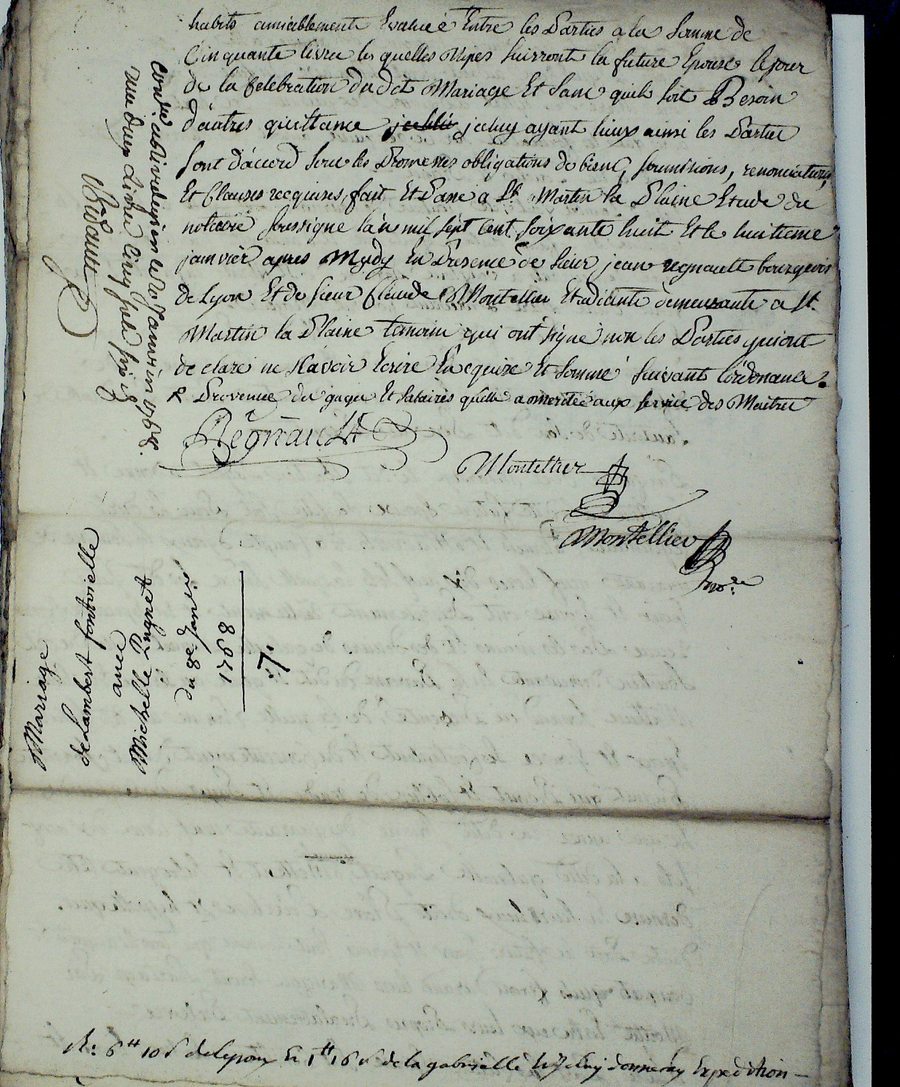 habits amiablement Evalués Entre les Parties a la somme de
Cinquante livre les quelles nipes suivront la future Epouse le jour
de la Celebration dudit Mariage Et sans quils soit Besoin
d'autres quittance jceluy ayant lieux ainsi les Partie
sont d'accord sous les Promesses obligations de biens, soumitions, renonciations,
Et Clauses requises, fait Et Passé a St Martin la Plaine Etude du
notaire soussigne lan mil sept Cent soixante huit Et le huitieme
janvier apres Mydy En Presence de sieur jean regnault bourgeois
de Lyon Et de sieur Claude Montellier demeurants a St
Martin la Plaine temoins qui ont signé non les Parties qui ont
de claré ne scavoir Ecrire Enquize Et sommé suivant l'ordonance.
Provenue du gages Et salaires quelle a merittée aux service des Maitres
Regnault
Montellier
Montellier
nore
janvier 1768.
Mariage
de Lambert fontvielle
avec
Michelle Pugnet
du 8e janvr
1768
7.
R: 6tt 10s de lyon Et 1tt 16s de la gabrielle Expedition